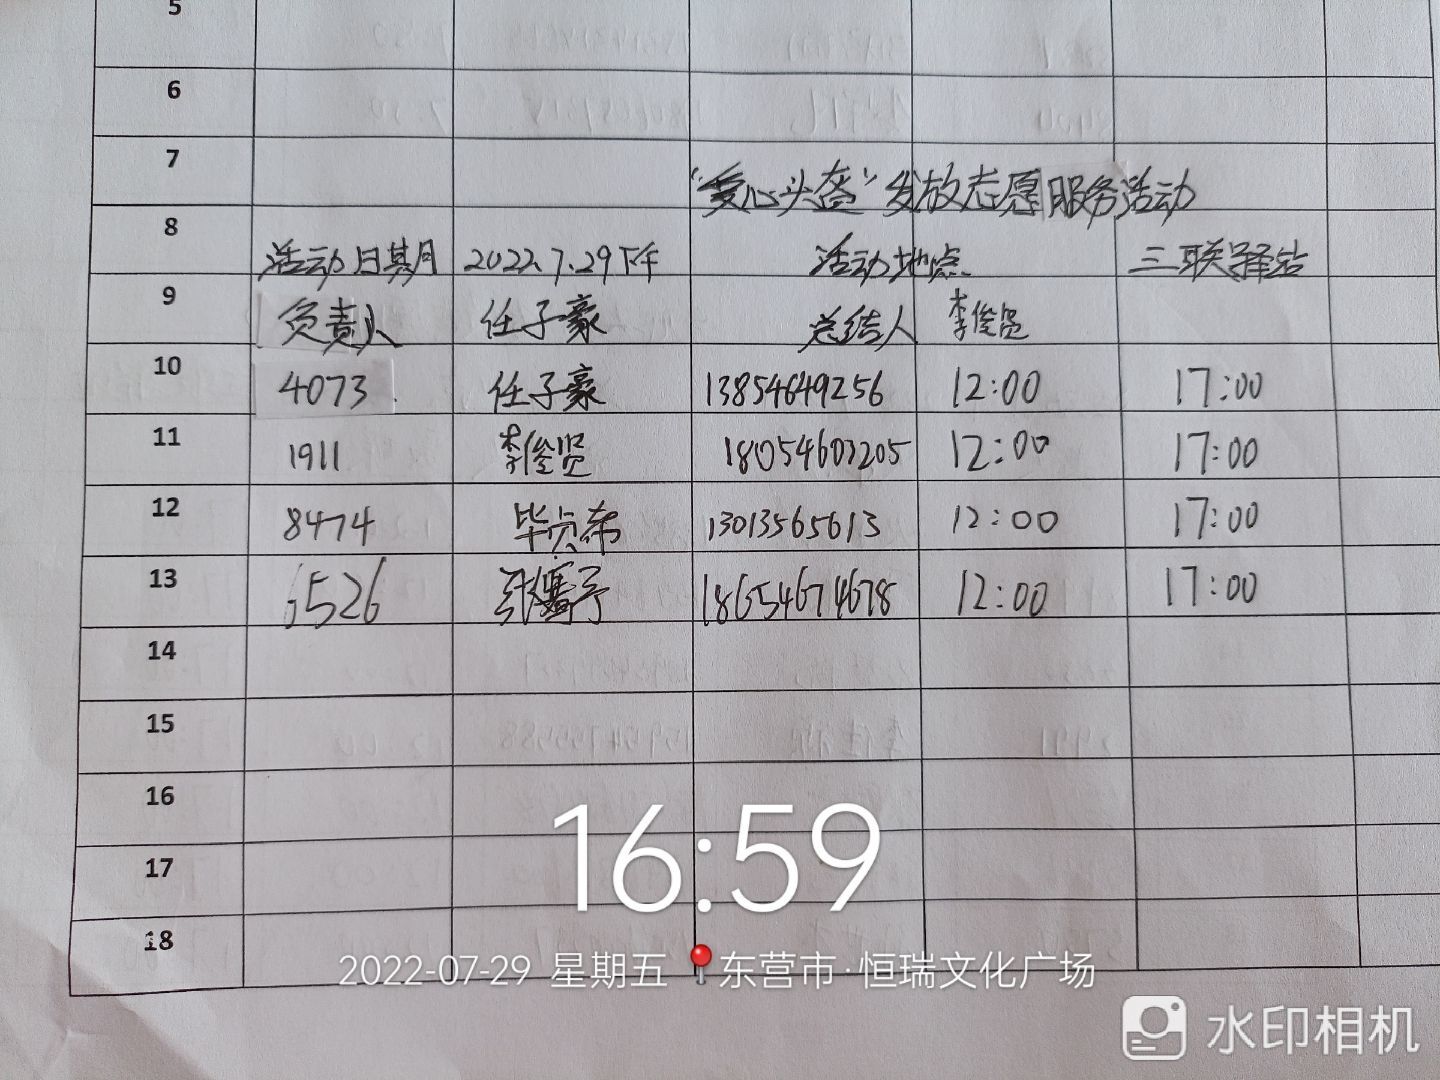 5
6
7
"爱心头盔"发放志愿服务活动
8 活动日期 2022.7.29下午 活动地点 三联驿站
9 负责人 任子豪 总结人 李俊贤
10 4073 任子豪 13854649256 12:00 17:00
11 1911 李俊贤 18054603205 12:00 17:00
12 8474 毕 13013565613 12:00 17:00
13 5526 张 18654674678 12:00 17:00
14
15
16
17
18
16:59
2022-07-29 星期五 东营市·恒瑞文化广场
水印相机